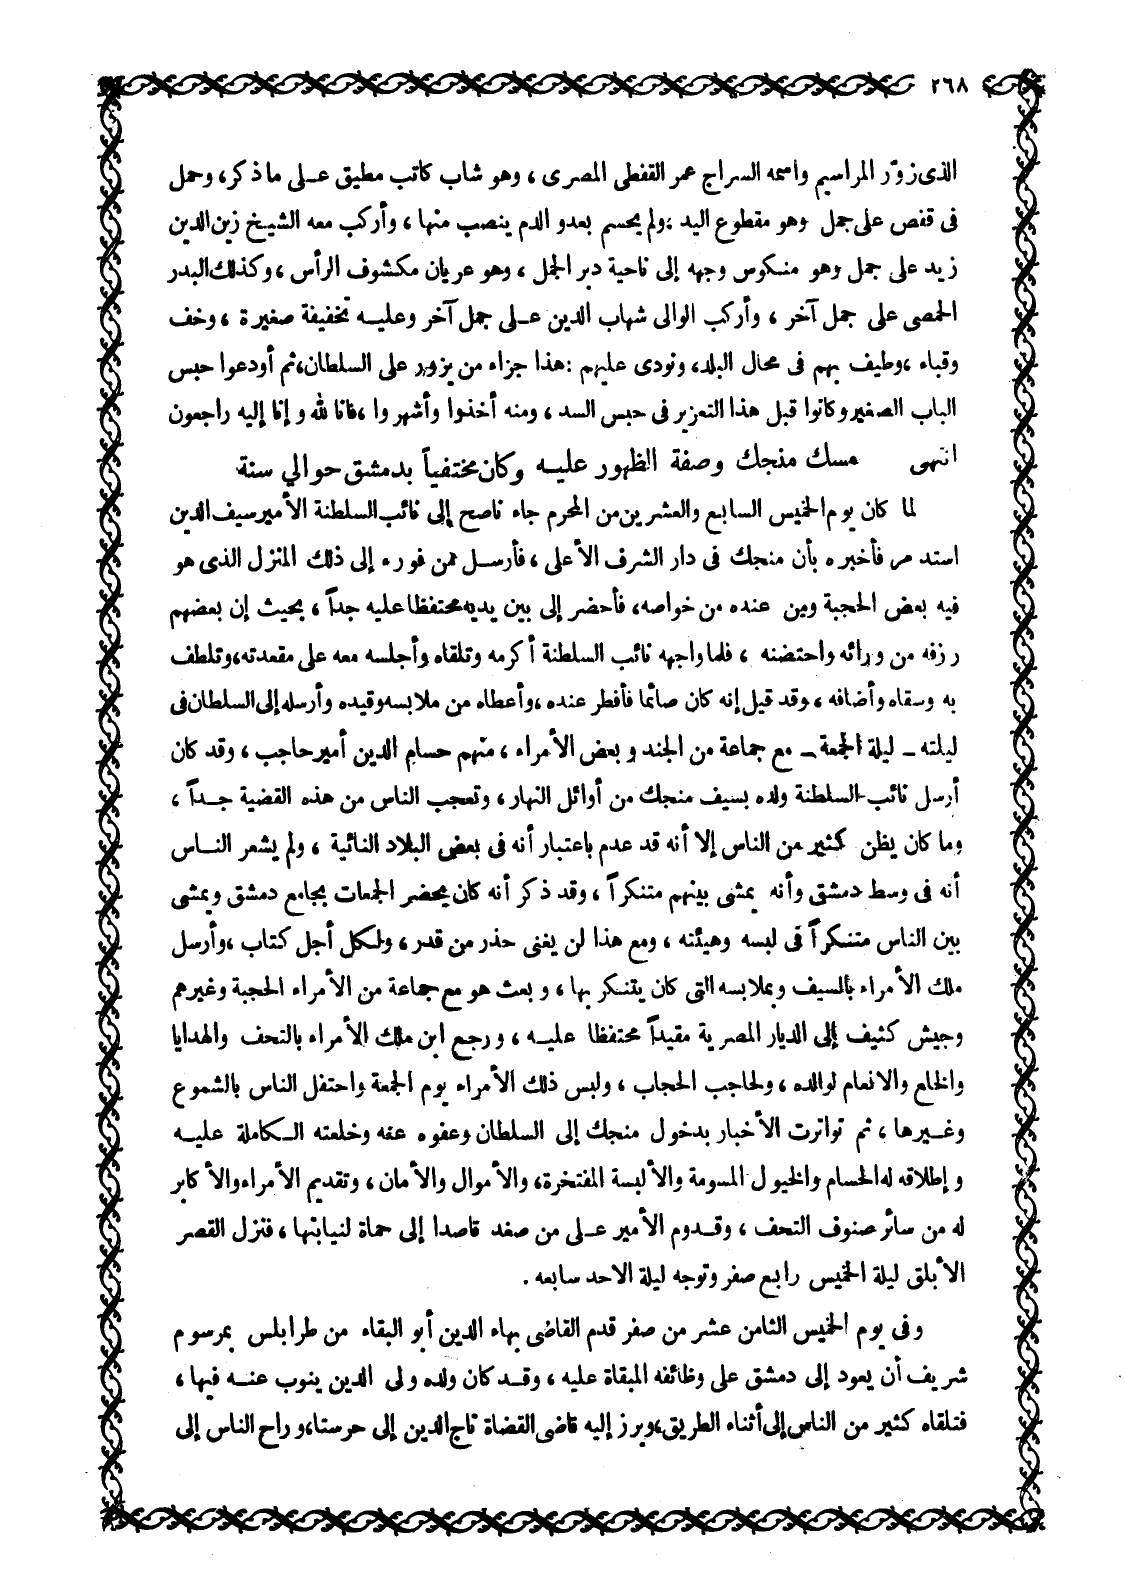 ٢٦٨
الذى زوّر المراسيم واسمه السراج عمر القفطى المصرى ، وهو شاب كاتب مطيق على ما ذكر، وحمل
فى قفص على جمل وهو مقطوع اليد ؛ولم يحسم بعدو الدم ينصب منها ، وأركب معه الشيخ زين الدين
زيد على جمل وهو منكوس وجهه إلى ناحية دبر الجمل ، وهو عريان مكشوف الرأس ، وكذلك البدر
الحمصى على جمل آخر ، وأركب الوالى شهاب الدين على جمل آخر وعليه تخفيفة صغيرة ، وخف
وقباء ،وطيف بهم فى محال البلد، ونودى عليهم :هذا جزاء من يزور على السلطان،ثم أودعوا حبس
الباب الصغير وكانوا قبل هذا التعزير فى حبس السد ، ومنه أخذوا وأشهروا ،فانا لله و إنا إليه راجعون
انتهى مسك منجك وصفة الظهور عليه وكان مختفياً بدمشق حوالي سنة
لما كان يوم الخميس السابع والعشرين من المحرم جاء ناصح إلى نائب السلطنة الأمير سيف الدين
استدمر فأخبره بأن منجك فى دار الشرف الأعلى ، فأرسل من فوره إلى ذلك المنزل الذى هو
فيه بعض الحجبة ومن عنده من خواصه، فأحضر إلى بين يديه محتفظا عليه جداً ، بحيث إن بعضهم
رزفه من ورائه واحتضنه ، فلما واجهه نائب السلطنة أكرمه وتلقاه وأجلسه معه على مقعدته،وتلطف
به وسقاه وأضافه ، وقد قيل إنه كان صائما فأفطر عنده ،وأعطاه من ملابسه وقيده وأرسله إلى السلطان فى
ليلته ـ ليلة الجمعة ـ مع جماعة من الجند و بعض الأمراء ، منهم حسام الدين أمير حاجب ، وقد كان
أرسل نائب السلطنة ولده بسيف منجك من أوائل النهار ، وتعجب الناس من هذه القضية جداً ،
وما كان يظن كثير من الناس إلا أنه قد عدم باعتبار أنه فى بعض البلاد النائية ، ولم يشعر الناس
أنه فى وسط دمشق وأنه يمشى بينهم متنكراً ، وقد ذكر أنه كان يحضر الجمعات بجامع دمشق ويمشى
بين الناس متنكراً فى لبسه وهيئته ، ومع هذا لن يغنى حذر من قدر ، ولكل أجل كتاب ،وأرسل
ملك الأمراء بالسيف وبملابسه التى كان يتنكر بها ، و بعث هو مع جماعة من الأمراء الحجبة وغيرهم
وجيش كثيف إلى الديار المصرية مقيداً محتفظا عليه ، ورجع ابن ملك الأمراء بالتحف والهدايا
والخلع والانعام لوالده ، ولحاجب الحجاب ، ولبس ذلك الأمراء يوم الجمعة واحتفل الناس بالشموع
وغيرها ، ثم تواترت الأخبار بدخول منجك إلى السلطان وعفوه عنه وخلعته الكاملة عليه
و إطلاقه له الحسام والخيول المسومة والألبسة المفتخرة، والأموال والأمان ، وتقديم الأمراء والأكابر
له من سائر صنوف التحف ، وقدوم الأمير على من صفد قاصدا إلى حماة لنيابتها ، فنزل القصر
الأبلق ليلة الخميس رابع صفر وتوجه ليلة الاحد سابعه .
وفى يوم الخميس الثامن عشر من صفر قدم القاضى بهاء الدين أبو البقاء من طرابلس بمرسوم
شريف أن يعود إلى دمشق على وظائفه المبقاة عليه ، وقد كان ولده ولى الدين ينوب عنه فيها ،
فتلقاه كثير من الناس إلى أثناء الطريق،وبرز إليه قاضى القضاة تاج الدين إلى حرستا،وراح الناس إلى